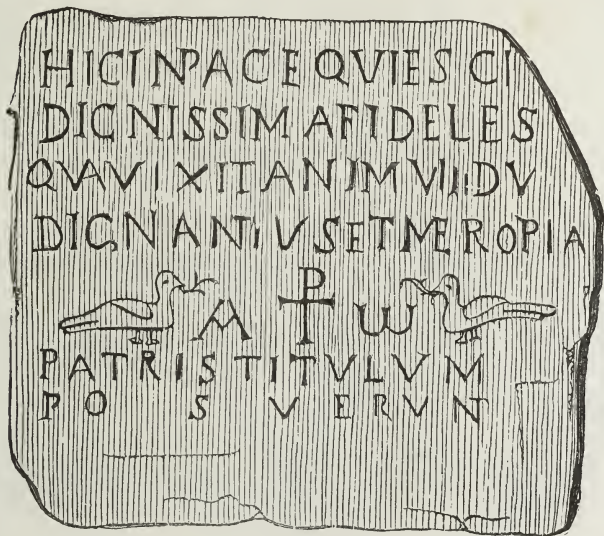 HIC IN PACE QVIESCI
DIGNISSIMA FIDELES
QVA VIXIT AN I M VIII DV
DIGNANTIVS ET MEROPIA
A ⳨ ω
PATRIS TITVLVM
POSVERVN